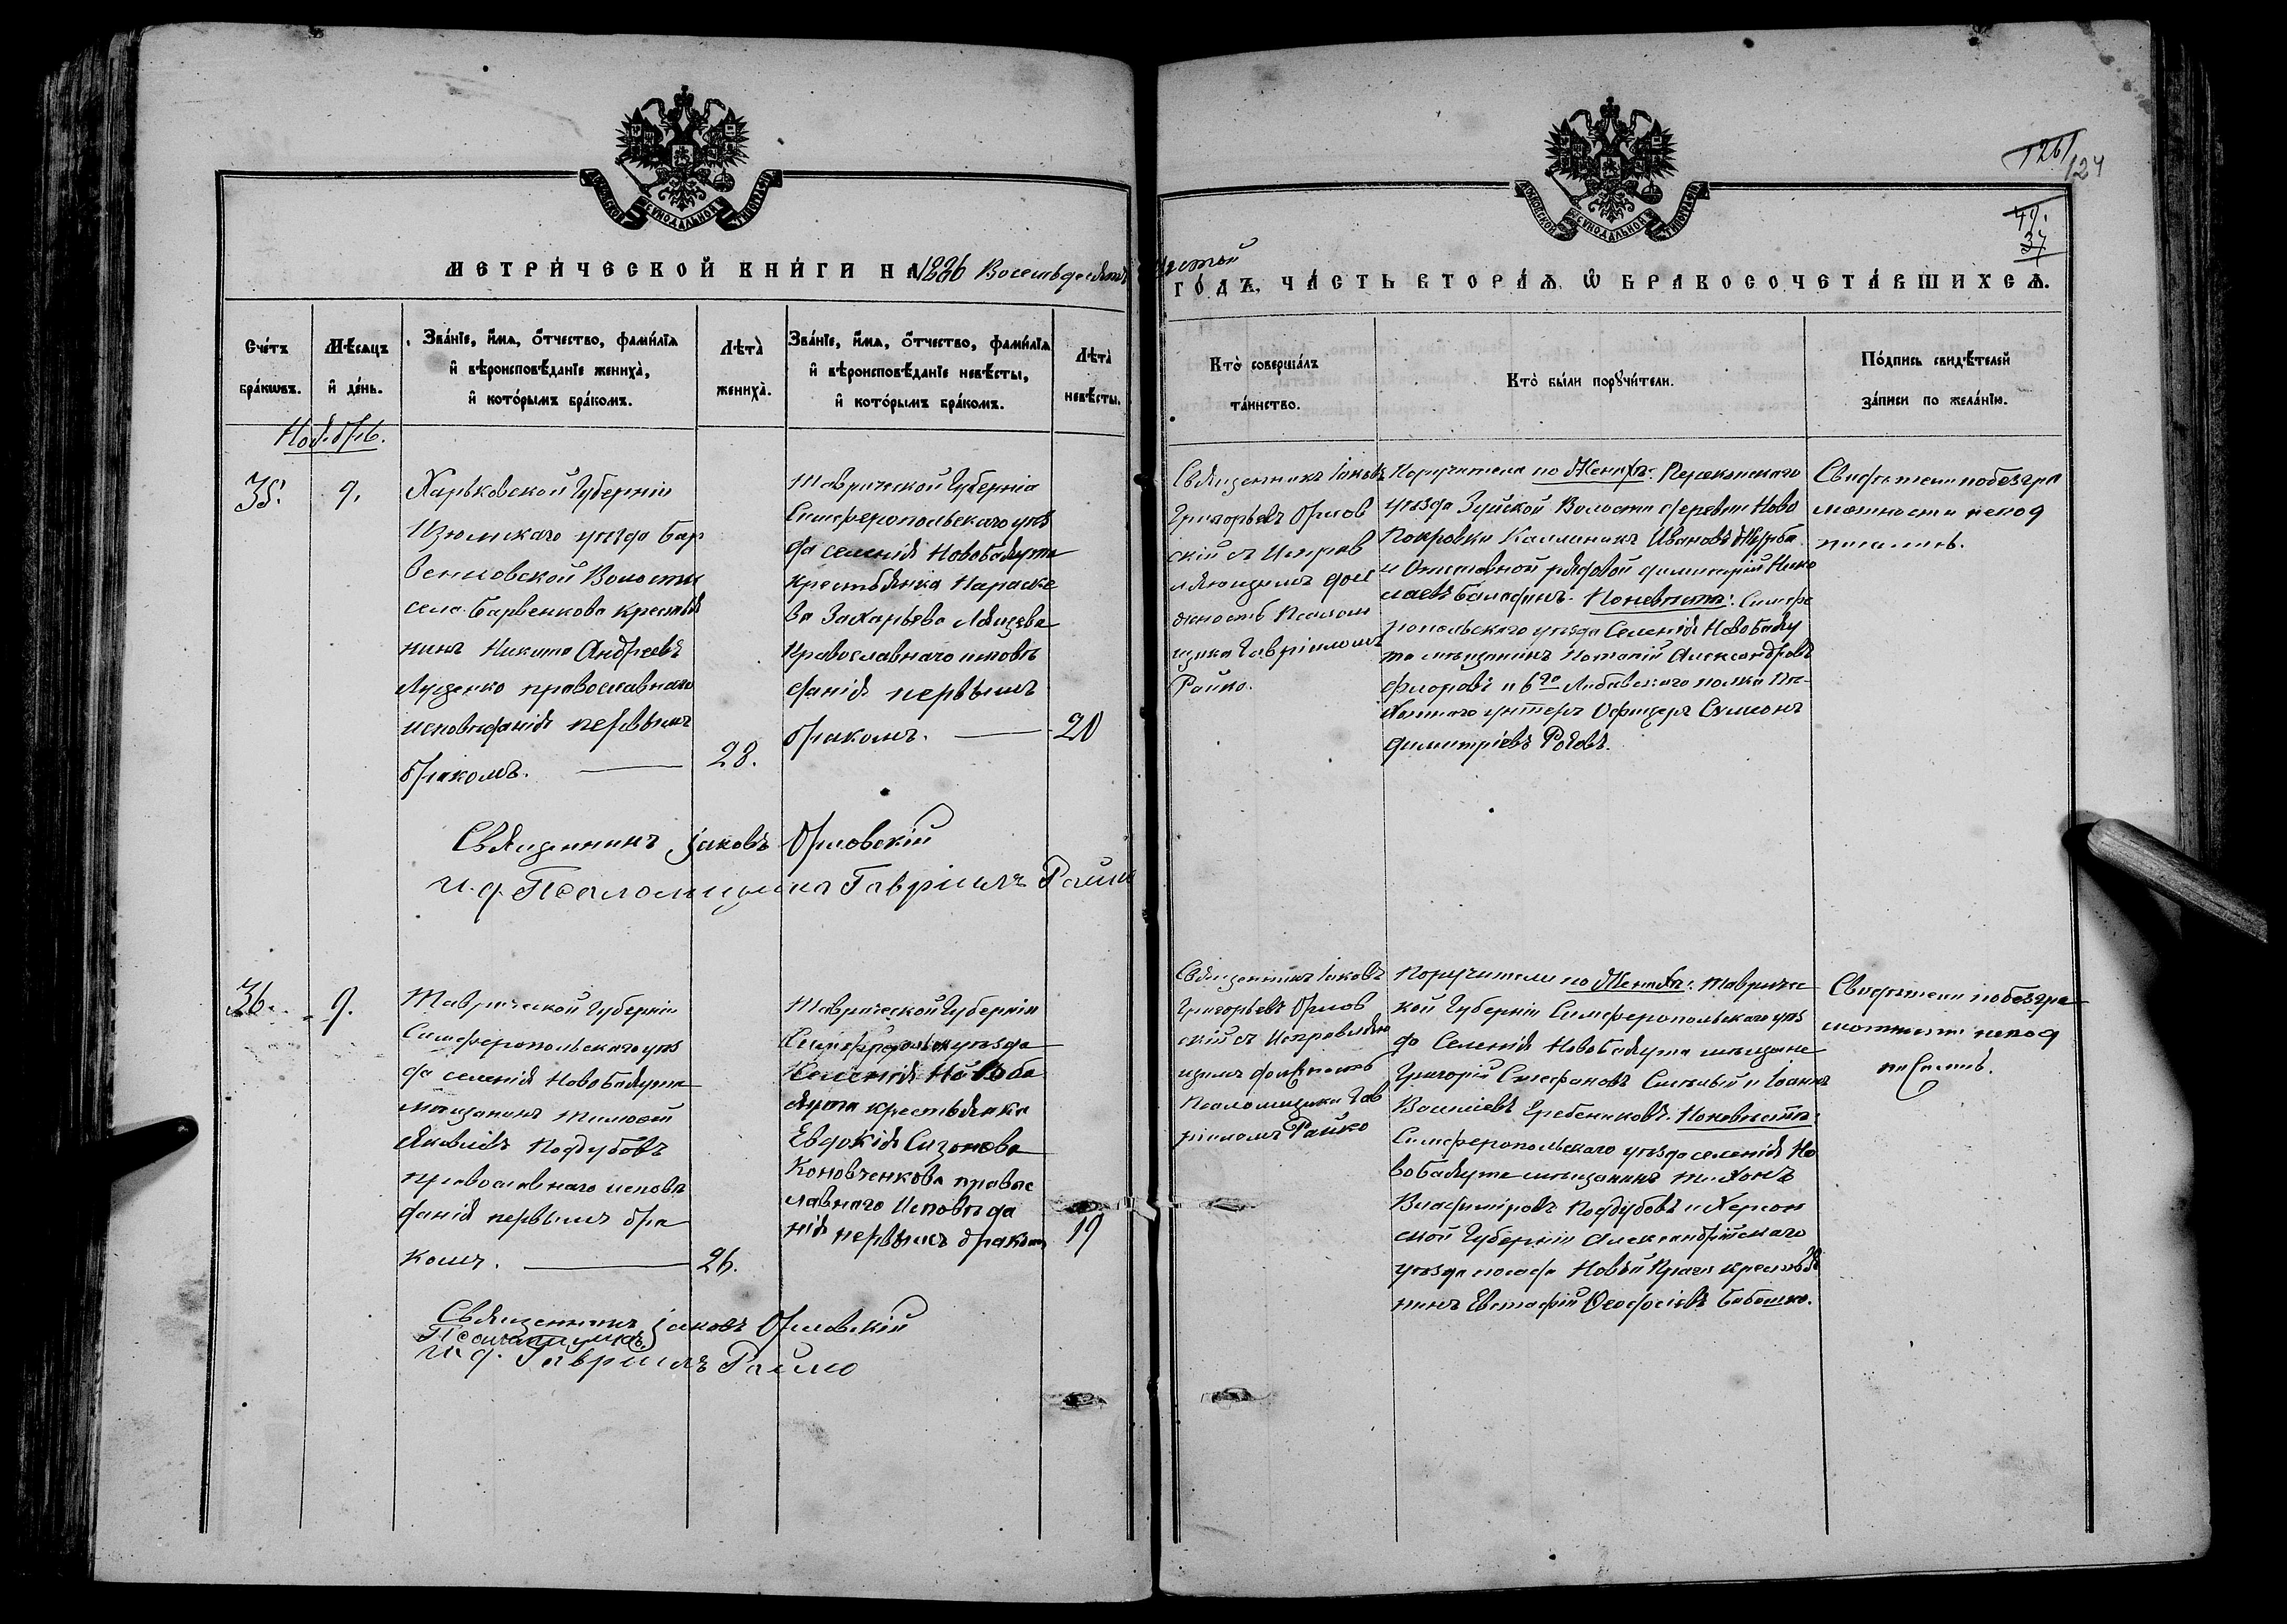 МОСКОВСКОЙ СѴНОДАЛЬНОЙ ТИПОГРАФІИ
МОСКОВСКОЙ СѴНОДАЛЬНОЙ ТИПОГРАФІИ
126
124
37
МЕТРИ́ЧЕСКОЙ КНИ́ГИ НА 1886 Восемьдесятъ шестой
ГО́ДЪ, ЧА́СТЬ ВТОРА́Ѧ, Ѡ БРАКОСОЧЕТА́ВШИХСѦ.
Сче́тъ бра́кѡвъ.
Мѣ́сѧцъ и҆ де́нь.
Зва́нїе, и҆́мѧ, ѻ҆́тчество, фами́лїѧ
и҆ вѣроисповѣ́данїе жениха̀,
и҆ кото́рымъ бра́комъ.
Лѣта̀ жениха̀.
Зва́нїе, и҆́мѧ, ѻ҆́тчество, фами́лїѧ
и҆ вѣроисповѣ́данїе невѣ́сты,
и҆ кото́рымъ бра́комъ.
Лѣта̀ невѣ́сты.
Кто̀ соверша́лъ
та́инство.
Кто̀ бы́ли порꙋчи́тели.
По́дпись свидѣ́телей
за́писи по жела́нїю.
Ноябрь.
35.
9.
Харьковской Губерніи
Изюмскаго уѣзда Бар
венковской Волости
села Барвенкова крестья
нинъ Никита Андреевъ
Луценко православнаго
исповѣданія первымъ
бракомъ.
28.
Таврической Губерніи
Симферопольскаго уѣз
да селенія Новобаяута
крестьянка Параске
ва Захарьева
Православнаго исповѣ
данія первымъ
бракомъ.
20
Священникъ Іаковъ
Григорьевъ Орлов
скій съ Исправ
ляющимъ дол
жность Псалом
щика Гавріиломъ
Райко.
Поручители по Женихѣ: Перекопскаго
уѣзда Зуйской Волости деревни Ново
Покровки Каллиникъ Ивановъ
и Отставной рядовой Димитрій Нико
лаевъ Балафинъ. По невѣстѣ: Симфе
ропольскаго уѣзда Селенія Новобаяу
та мѣщанинъ Потапій Александровъ
Флоровъ и 6го Либавскаго полка Пѣ
хотнаго унтеръ Офицеръ Симеонъ
Димитріевъ Роговъ.
Свидѣтели по безгра
мотности не под
писались.
Священникъ Іаковъ Орловскій
И. д. Псаломщика Гавріилъ Райко
36.
9.
Таврической Губерніи
Симферопольскаго уѣз
да селенія Новобаяута
мѣщанинъ Тимофей
Яковлевъ Поддубовъ
православнаго исповѣ
данія первымъ бра
комъ.
26.
Таврической Губерніи
Симферополь уѣзда
Селенія Новоба
яута крестьянка
Евдокія Сизонова
Коновченкова правос
лавнаго Исповѣда
нія первымъ бракомъ
19
Священникъ Іаковъ
Григорьевъ Орлов
скій съ Исправляю
щимъ должность
Псаломщика Гав
ріиломъ Райко
Поручители по Женихѣ: Тавричес
кой Губерніи Симферопольскаго уѣз
да Селенія Новобаяута мѣщане
Григорій Стефановъ и Іоаннъ
Василіевъ Гребениковъ. По невѣстѣ:
Симферопольскаго уѣзда селенія Но
вобаяута мѣщанинъ Тихонъ
Владиміровъ Поддубовъ и Херсон
ской Губерніи Александрійскаго
уѣзда посада Новый Прага крестья
нинъ Евстафій Ѳеодосіевъ Бабашко.
Свидѣтели по безгра
мотности не под
писались.
Священникъ Іаковъ Орловскій
Псаломщика
И. д. Гавріилъ Райко